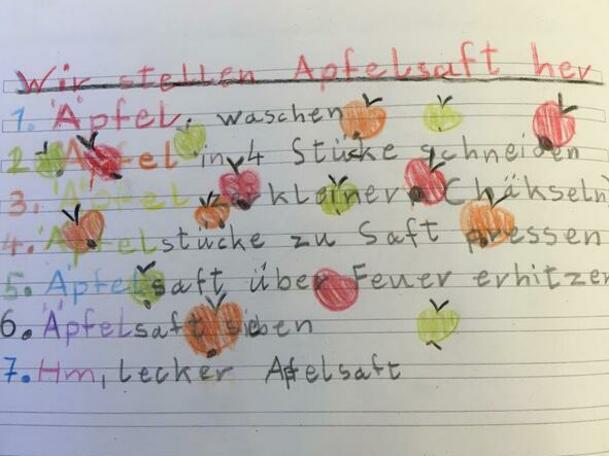 Wir stellen Apfelsaft her
1. Äpfel waschen
2. Äpfel in 4 Stücke schneiden
3. Äpfel zerkleinern (Chäkseln)
4. Äpfelstücke zu Saft pressen
5. Äpfelsaft über Feuer erhitzen
6. Äpfelsaft sieben
7. Hm, lecker Apfelsaft